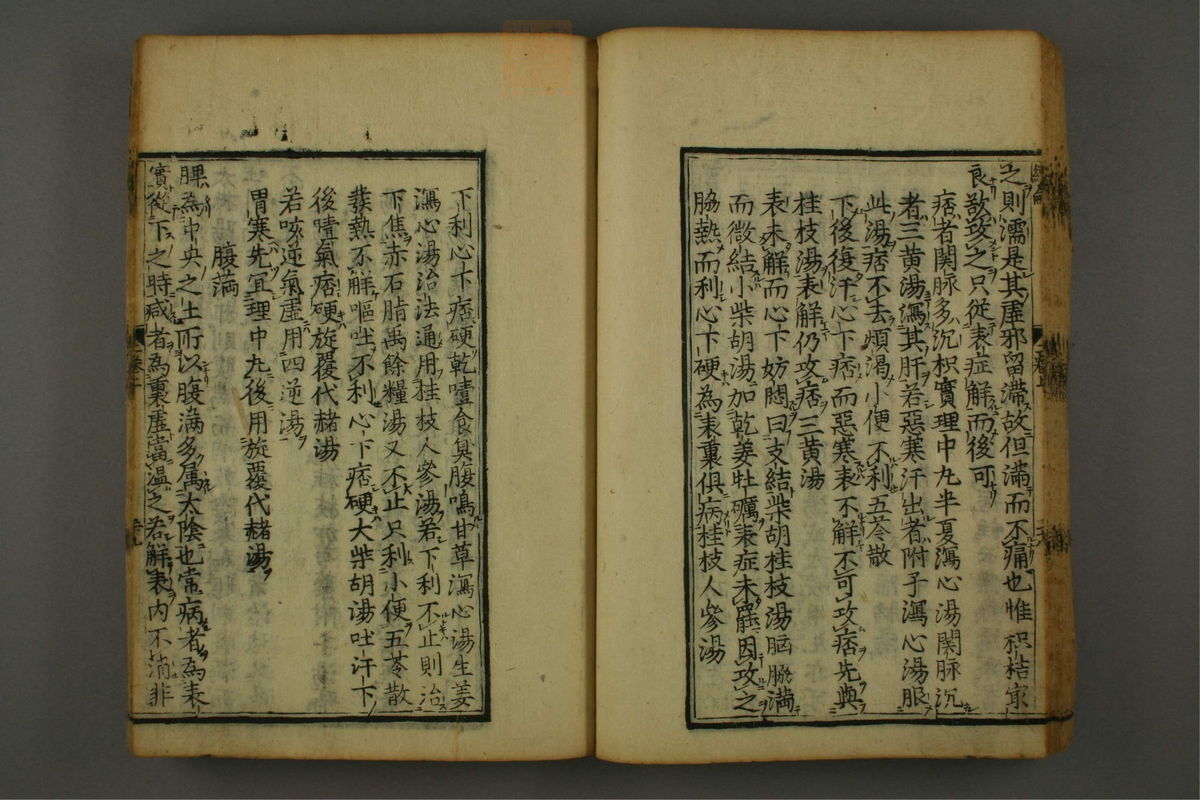 之則濡是其虚邪留滯故但滿而不痛也惟枳桔寂
良欲攻之只從表症解而後可
痞者関脉多沉枳實理中丸半夏瀉心湯関脉沉
者三黄湯瀉其肝若惡寒汗出者附子瀉心湯服
此湯痞不去煩渴小便不利五苓散
下後復汗心下痞而惡寒表不解不可攻痞先與
桂枝湯表解仍攻痞三黄湯
表未解而心下妨悶曰支結柴胡桂枝湯胸脇滿
而微結小柴胡湯加乾姜牡礪表症未罷因攻之
脇熱而利心下硬為表裏俱病桂枝人參湯
下利心下痞硬乾噎食臭腹鳴甘草瀉心湯生姜
瀉心湯治法通用桂枝人參湯若下利不止則治
下焦赤石脂禹餘糧湯又不止只利小便五苓散
發熱不解嘔吐不利心下痞硬大柴胡湯吐汗下
後噫氣痞硬旋覆代赭湯
若咳逆氣虚用四逆湯
胃寒先宜理中丸後用旋覆代赭湯
腹滿
脾為中央之土所以腹滿多属太陰也常病者為表
實從下之時减者為裏虚當温之若解表内不消非